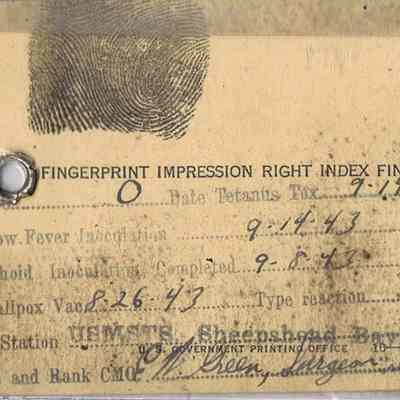 FINGERPRINT IMPRESSION RIGHT INDEX FIN
O Date Tetanus Tox. 9-14
ow. Fever Inoculation 9-14-43
hoid Inoculation Completed 9-8-43
llpox Vac 8-26-43 Type reaction
Station USMSTS, Sheepshead Bay
U. S. GOVERNMENT PRINTING OFFICE 10—
and Rank CMO W Green, Surgeon